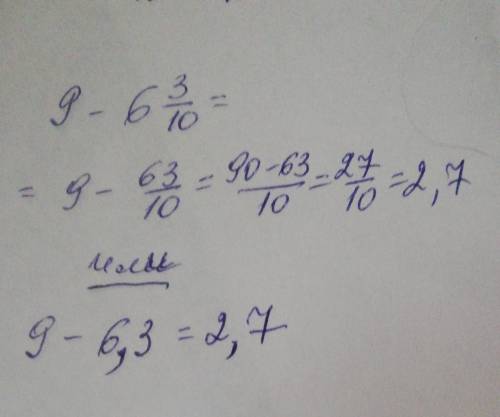 9 - 6 3/10 =
= 9 - 63/10 = 90-63/10 = 27/10 = 2,7
или
9 - 6,3 = 2,7